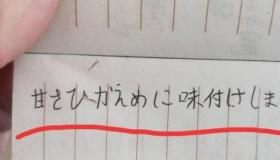 甘さひかえめに味付けしま